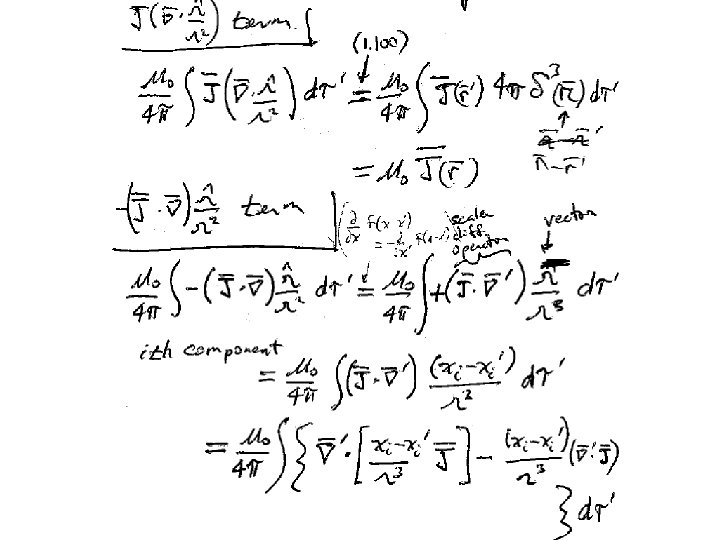 J̄(∇̄·𝓇̂/𝓇²) term
(1.100)
μ₀/4π ∫ J̄(∇̄·𝓇̂/𝓇²) dτ' = μ₀/4π ∫ J̄(r̄') 4π δ³(𝓇̄) dτ'
r̄-r̄'
= μ₀ J̄(r̄)
-(J̄·∇̄)𝓇̂/𝓇² term
scaler
diff.
operator
vector
μ₀/4π ∫ -(J̄·∇̄)𝓇̂/𝓇² dτ' = μ₀/4π ∫ +(J̄·∇̄')𝓇̄/𝓇³ dτ'
ith component
= μ₀/4π ∫ (J̄·∇̄') (xᵢ-xᵢ')/𝓇² dτ'
= μ₀/4π ∫ { ∇̄'·[xᵢ-xᵢ'/𝓇³ J̄] - (xᵢ-xᵢ')/𝓇³ (∇̄'·J̄)
} dτ'